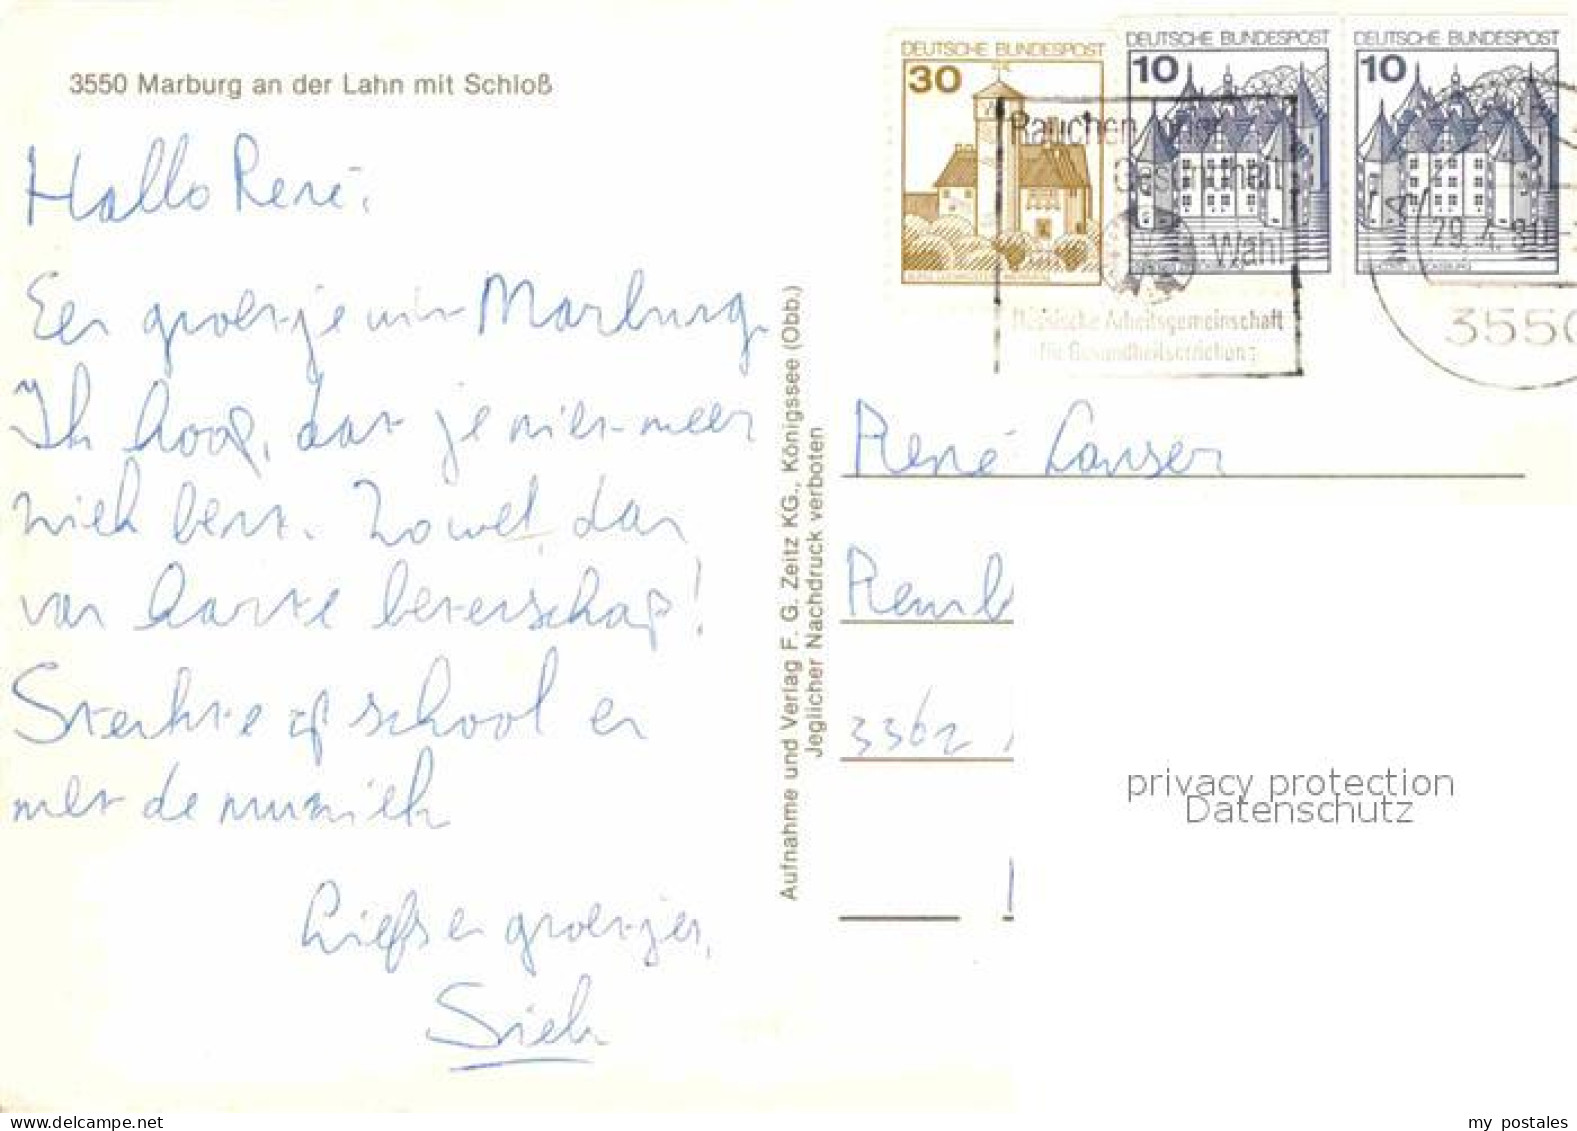 3550 Marburg an der Lahn mit Schloß
Hallo René,
Een groetje uit Marburg.
Ik hoop, dat je niet meer
ziek bent. Zowel, dan
van harte beterschap!
Sterkte op school en
met de muziek
Liefs en groetjes,
Aufnahme und Verlag F. G. Zeitz KG., Königssee (Obb.)
Jeglicher Nachdruck verboten
DEUTSCHE BUNDESPOST
30
DEUTSCHE BUNDESPOST
10
DEUTSCHE BUNDESPOST
10
Rauchen oder
Gesundheit
Wahl
Hessische Arbeitsgemeinschaft
für Gesundheitserziehung
29.4.80
3550
René
Remb
3362
privacy protection
Datenschutz
my postales